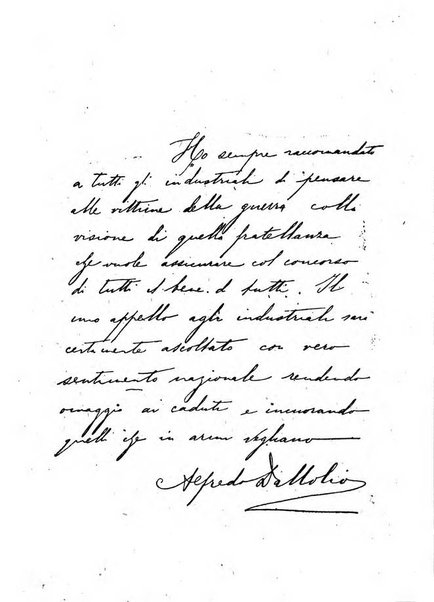 Ho sempre raccomandato
a tutti gli industriali di pensare
alle vittime della guerra colla
visione di quella fratellanza
che vuole assicurare col concorso
di tutti il bene di tutti. Il
mio appello agli industriali sarà
certamente ascoltato con vero
sentimento nazionale rendendo
omaggio ai caduti e incuorando
quelli che in armi vegliano
Alfredo Dallolio